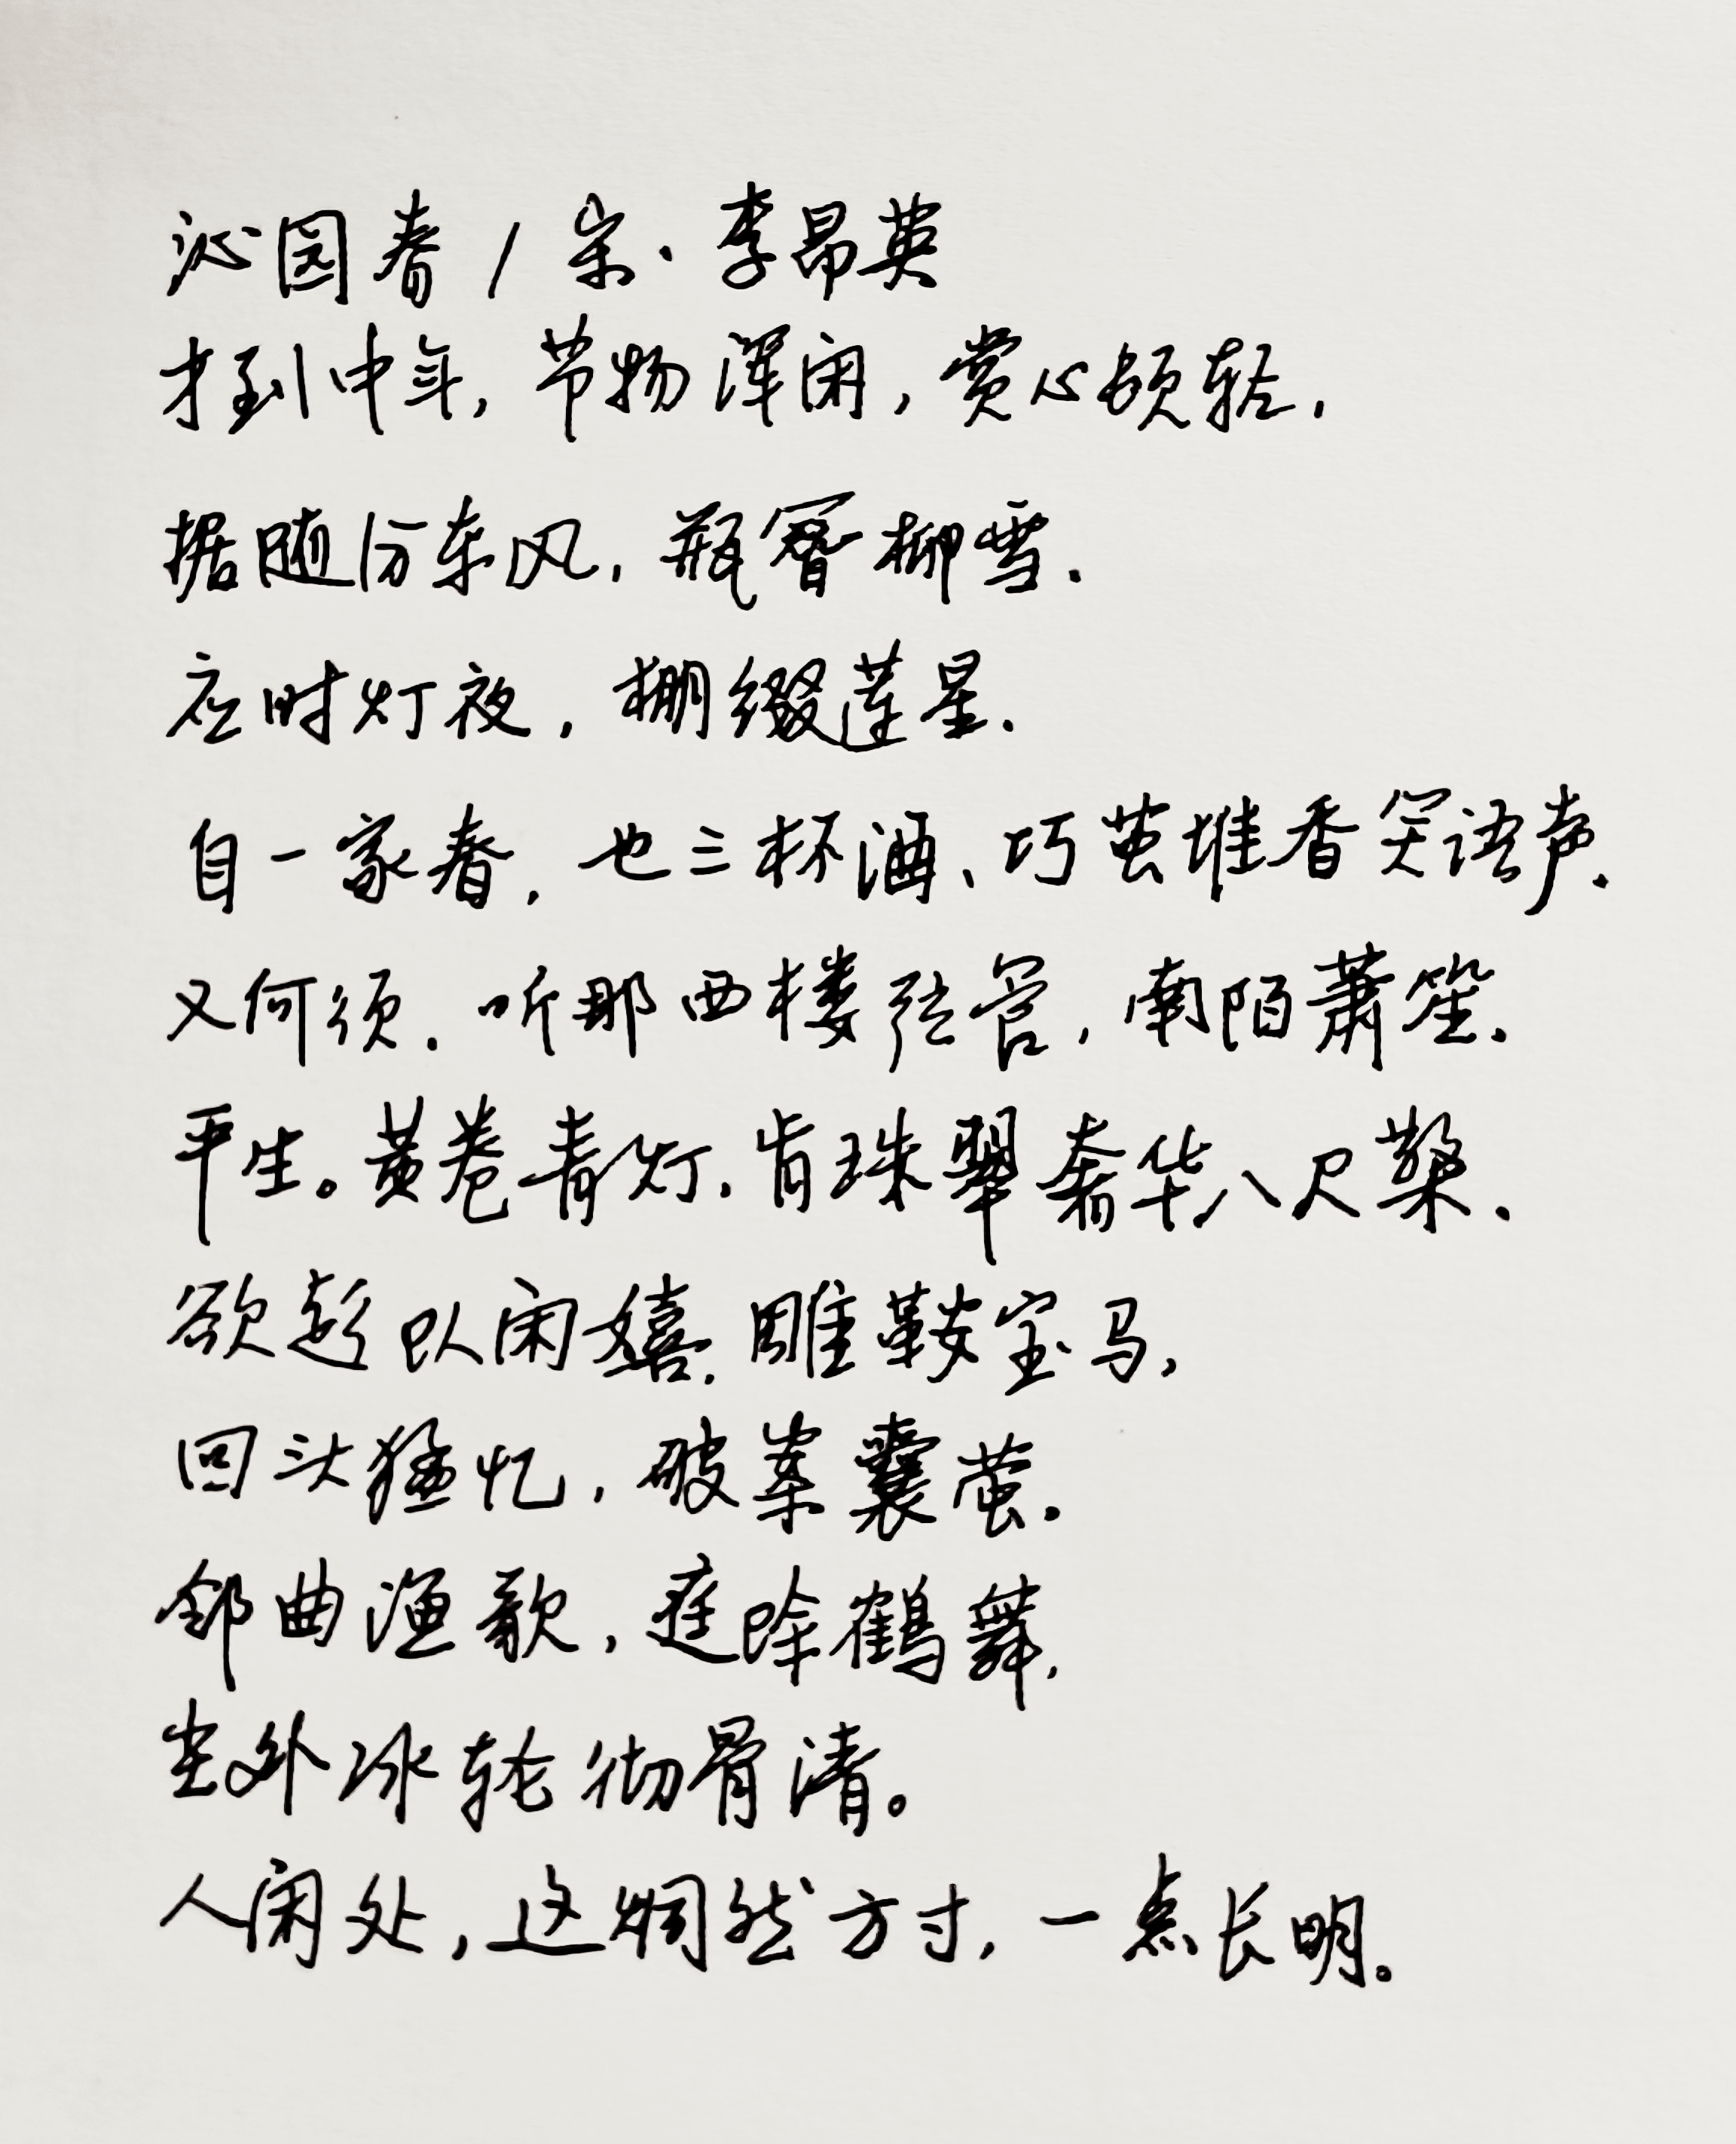 沁园春/宋·李昂英
才到中年,节物浑闲,赏心顿轻.
据随分东风,瓶罾柳雪.
应时灯夜,棚缀莲星.
自一家春,也三杯酒、巧茧堆香笑语声.
又何须.听那西楼弦管,南陌萧笙.
平生。黄卷青灯.肯珠翠奢华八尺檠.
欲趁队闲嬉.雕鞍宝马,
回头猛忆,破案囊萤.
邻曲渔歌,庭除鹤舞,
尘外冰轮彻骨清。
人闲处,这炯然方寸,一点长明。